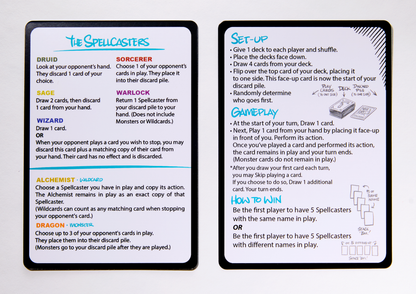 The Spellcasters
DRUID
Look at your opponent's hand.
They discard 1 card of your
choice.
SAGE
Draw 2 cards, then discard
1 card from your hand.
WIZARD
Draw 1 card.
OR
When your opponent plays a card you wish to stop, you may
discard this card plus a matching copy of their card from
your hand. Their card has no effect and is discarded.
SORCERER
Choose 1 of your opponent's
cards in play. They place it
into their discard pile.
WARLOCK
Return 1 Spellcaster from
your discard pile to your
hand. (Does not include
Monsters or Wildcards.)
ALCHEMIST - WILDCARD
Choose a Spellcaster you have in play and copy its action.
The Alchemist remains in play as an exact copy of that
Spellcaster.
(Wildcards can count as any matching card when stopping
your opponent's card.)
DRAGON - MONSTER
Choose up to 3 of your opponent's cards in play.
They place them into their discard pile.
(Monsters go to your discard pile after they are played.)
SET-UP
• Give 1 deck to each player and shuffle.
• Place the decks face down.
• Draw 4 cards from your deck.
• Flip over the top card of your deck, placing it
to one side. This face-up card is now the start of your
discard pile.
• Randomly determine
who goes first.
DECK
GAMEPLAY
• At the start of your turn, Draw 1 card.
• Next, Play 1 card from your hand by placing it face-up
in front of you. Perform its action.
Once you've played a card and performed its action,
the card remains in play and your turn ends.
(Monster cards do not remain in play.)
*After you draw your first card each turn,
you may Skip playing a card.
If you choose to do so, Draw 1 additional
card. Your turn ends.
HOW TO WIN
Be the first player to have 5 Spellcasters
with the same name in play.
OR
Be the first player to have 5 Spellcasters
with different names in play.